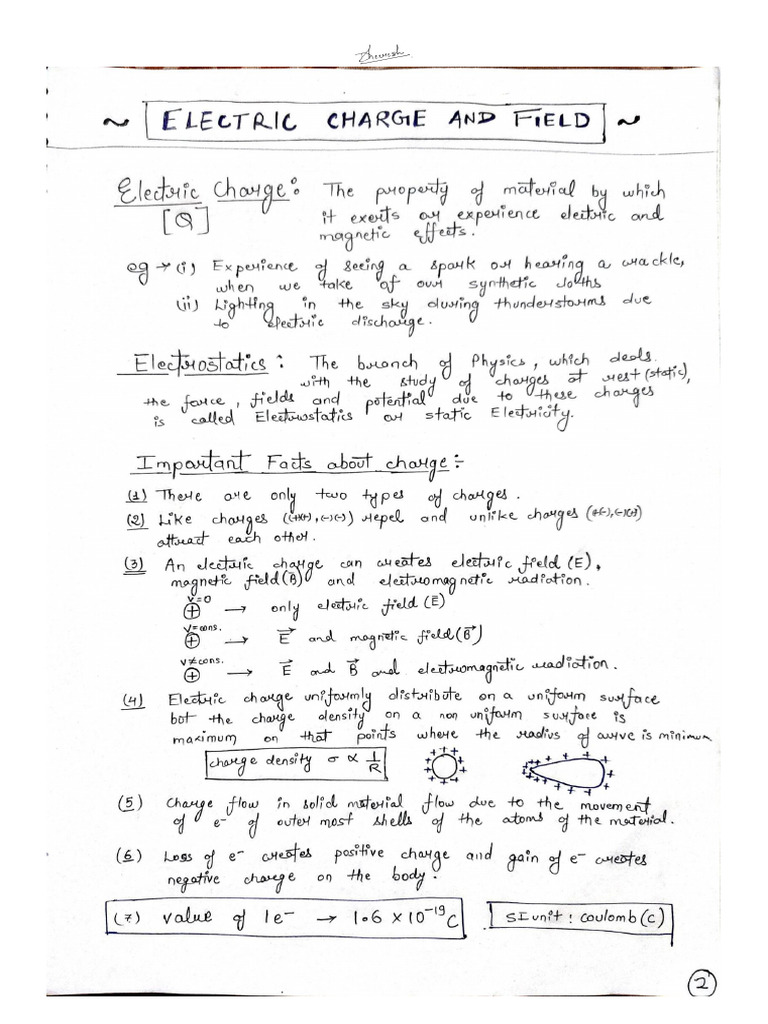 Dheeresh
~ ELECTRIC CHARGE AND FIELD ~
Electric Charge: The property of material by which
[Q] it exerts or experience electric and
magnetic effects.
eg → (i) Experience of seeing a spark or hearing a crackle,
when we take of our synthetic cloths
(ii) Lighting in the sky during thunderstorms due
to electric discharge.
Electrostatics: The branch of Physics, which deals
with the study of charges at rest (static),
the force, fields and potential due to these charges
is called Electrostatics or static Electricity.
Important Facts about charge:-
(1) There are only two types of charges.
(2) Like charges (+)(+), (-)(-) repel and unlike charges (+)(-), (-)(+)
attract each other.
(3) An electric charge can creates electric field (E),
magnetic field (B) and electromagnetic radiation.
v=0
⊕ → only electric field (E⃗)
v=cons.
⊕ → E⃗ and magnetic field (B⃗)
v≠cons.
⊕ → E⃗ and B⃗ and electromagnetic radiation.
(4) Electric charge uniformly distribute on a uniform surface
but the charge density on a non uniform surface is
maximum on that points where the radius of curve is minimum
charge density σ ∝ 1/R
(5) Charge flow in solid material flow due to the movement
of e⁻ of outer most shells of the atoms of the material.
(6) Loss of e⁻ creates positive charge and gain of e⁻ creates
negative charge on the body.
(7) value of 1e⁻ → 1.6 × 10⁻¹⁹ C
SI unit: coulomb (C)
2